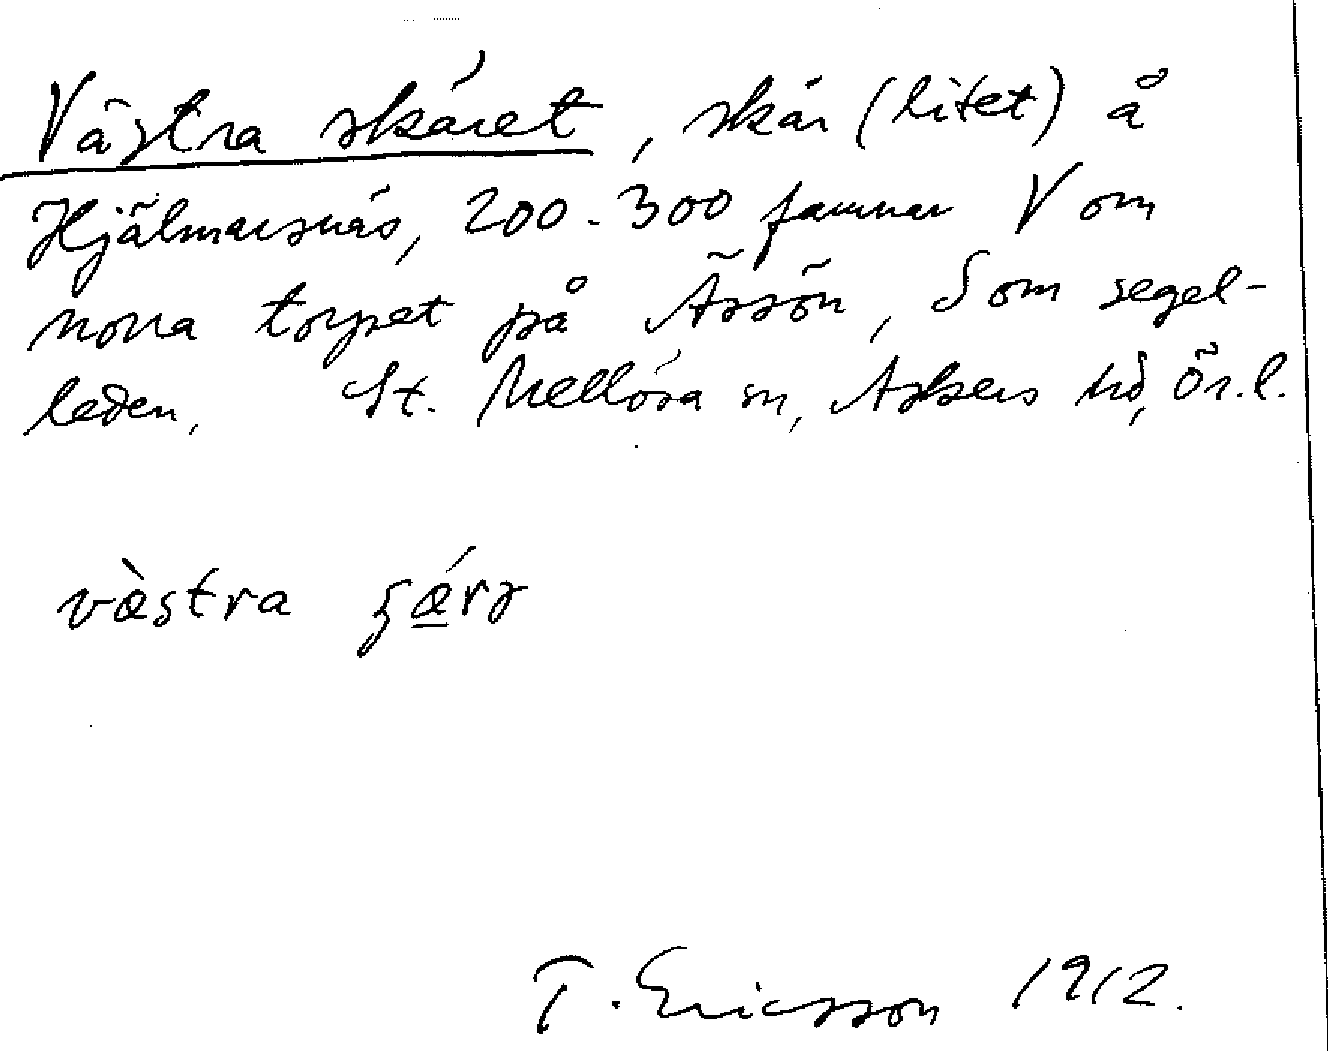 Västra skäret, skär (litet) å
Hjälmarsnäs, 200-300 famnar V om
norra torpet på Ässön, S om segel-
leden, St. Mellösa sn, Askers hd, Ör.l.
væ̀stra ʂǽrə
T. Ericsson 1912.